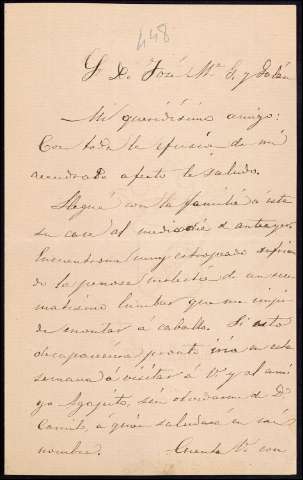 448
Sr. Dn. José Mª G. y Galán
Mi queridísimo amigo:
Con toda la efusión de mi
acendrado afecto le saludo.
Llegué con la familia á esta
su casa al mediodía d. anteayer.
Encuentrome muy estropeado sufrien
do la penosa molestia de un reu
matismo lumbar que me impi
de montar a caballo. Si esto
desapareciera pronto iría en esta
semana á visitar á V. y al ami
go Agapito, sin olvidarme de Dn.
Camilo, á quien saludará en mi
nombre.
Cuente V. con